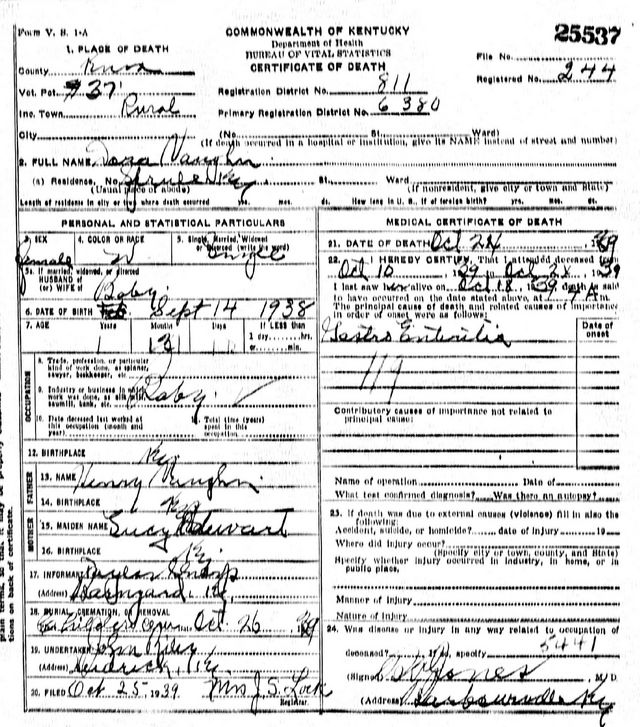 Form V. S. 1-A
COMMONWEALTH OF KENTUCKY
Department of Health
BUREAU OF VITAL STATISTICS
CERTIFICATE OF DEATH
25537
File No.
Registered No. 244
1. PLACE OF DEATH
County Knox
Vot. Pct. #37
Inc. Town Rural
Registration District No. 811
Primary Registration District No. 6380
City (No. St. Ward)
(If death occurred in a hospital or institution, give its NAME instead of street and number)
2. FULL NAME Vaughn
(a) Residence, No. Ky St. Ward
(Usual place of abode) (If nonresident, give city or town and State)
Length of residence in city or town where death occurred yrs. mos. ds. How long in U. S., if of foreign birth? yrs. mos. ds.
PERSONAL AND STATISTICAL PARTICULARS
3. SEX 4. COLOR OR RACE 5. Single, Married, Widowed
or Divorced (write the word)
Female W Single
5a. If married, widowed, or divorced
HUSBAND of
(or) WIFE of Baby
6. DATE OF BIRTH Sept 14 1938
7. AGE Years Months Days If LESS than
1 day, hrs.
or min.
1 1
OCCUPATION
8. Trade, profession, or particular
kind of work done, as spinner,
sawyer, bookkeeper, etc.
9. Industry or business in which
work was done, as silk mill,
sawmill, bank, etc. Baby
10. Date deceased last worked at
this occupation (month and
year)
11. Total time (years)
spent in this
occupation
12. BIRTHPLACE Ky
FATHER
13. NAME Henry Vaughn
14. BIRTHPLACE Ky
MOTHER
15. MAIDEN NAME Lucy Stewart
16. BIRTHPLACE Ky
17. INFORMANT
(Address) Ky
18. BURIAL, CREMATION, OR REMOVAL
Oct. 26 39
19. UNDERTAKER John Riley
(Address) Ky
20. FILED Oct. 25 1939 Mrs J. S. Lock
Registrar.
MEDICAL CERTIFICATE OF DEATH
21. DATE OF DEATH Oct 24 1939
22. I HEREBY CERTIFY, That I attended deceased from
Oct 10 1939 to Oct 24 1939
I last saw h alive on Oct 18, 1939 death is said
to have occurred on the date stated above, at M.
The principal cause of death and related causes of importance
in order of onset were as follows:
Date of
onset
Gastro Enteritis
119
Contributory causes of importance not related to
principal cause:
Name of operation Date of
What test confirmed diagnosis? Was there an autopsy?
23. If death was due to external causes (violence) fill in also the
following:
Accident, suicide, or homicide? date of injury 19
Where did injury occur?
(Specify city or town, county, and State)
Specify whether injury occurred in industry, in home, or in
public place,
Manner of Injury
Nature of injury
24. Was disease or injury in any way related to occupation of
deceased? If so, specify 5441
(Signed) Jones M.D.
(Address) Barbourville Ky
tions on back of certificate.